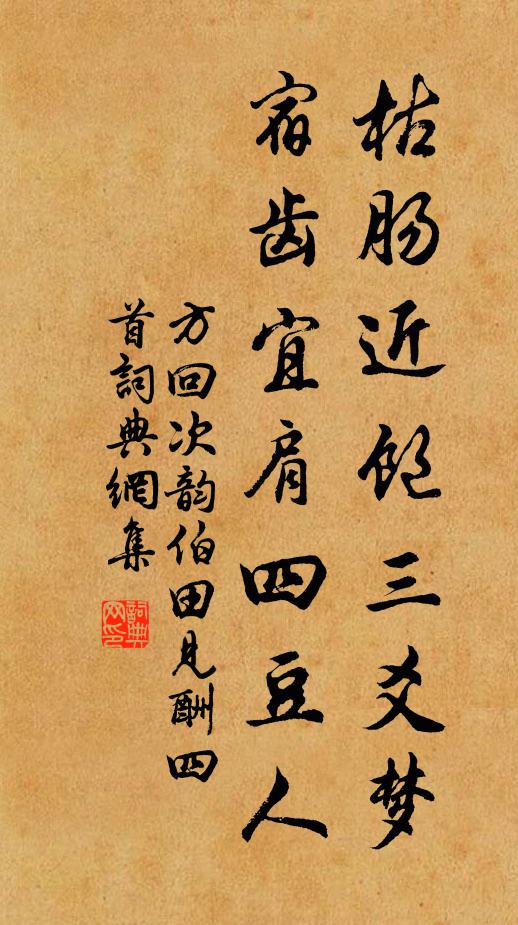 枯肠近饱三爻梦
宿齿宜肩四豆人
方回次韵伯田见酬四
首詞典網集
詞典网印